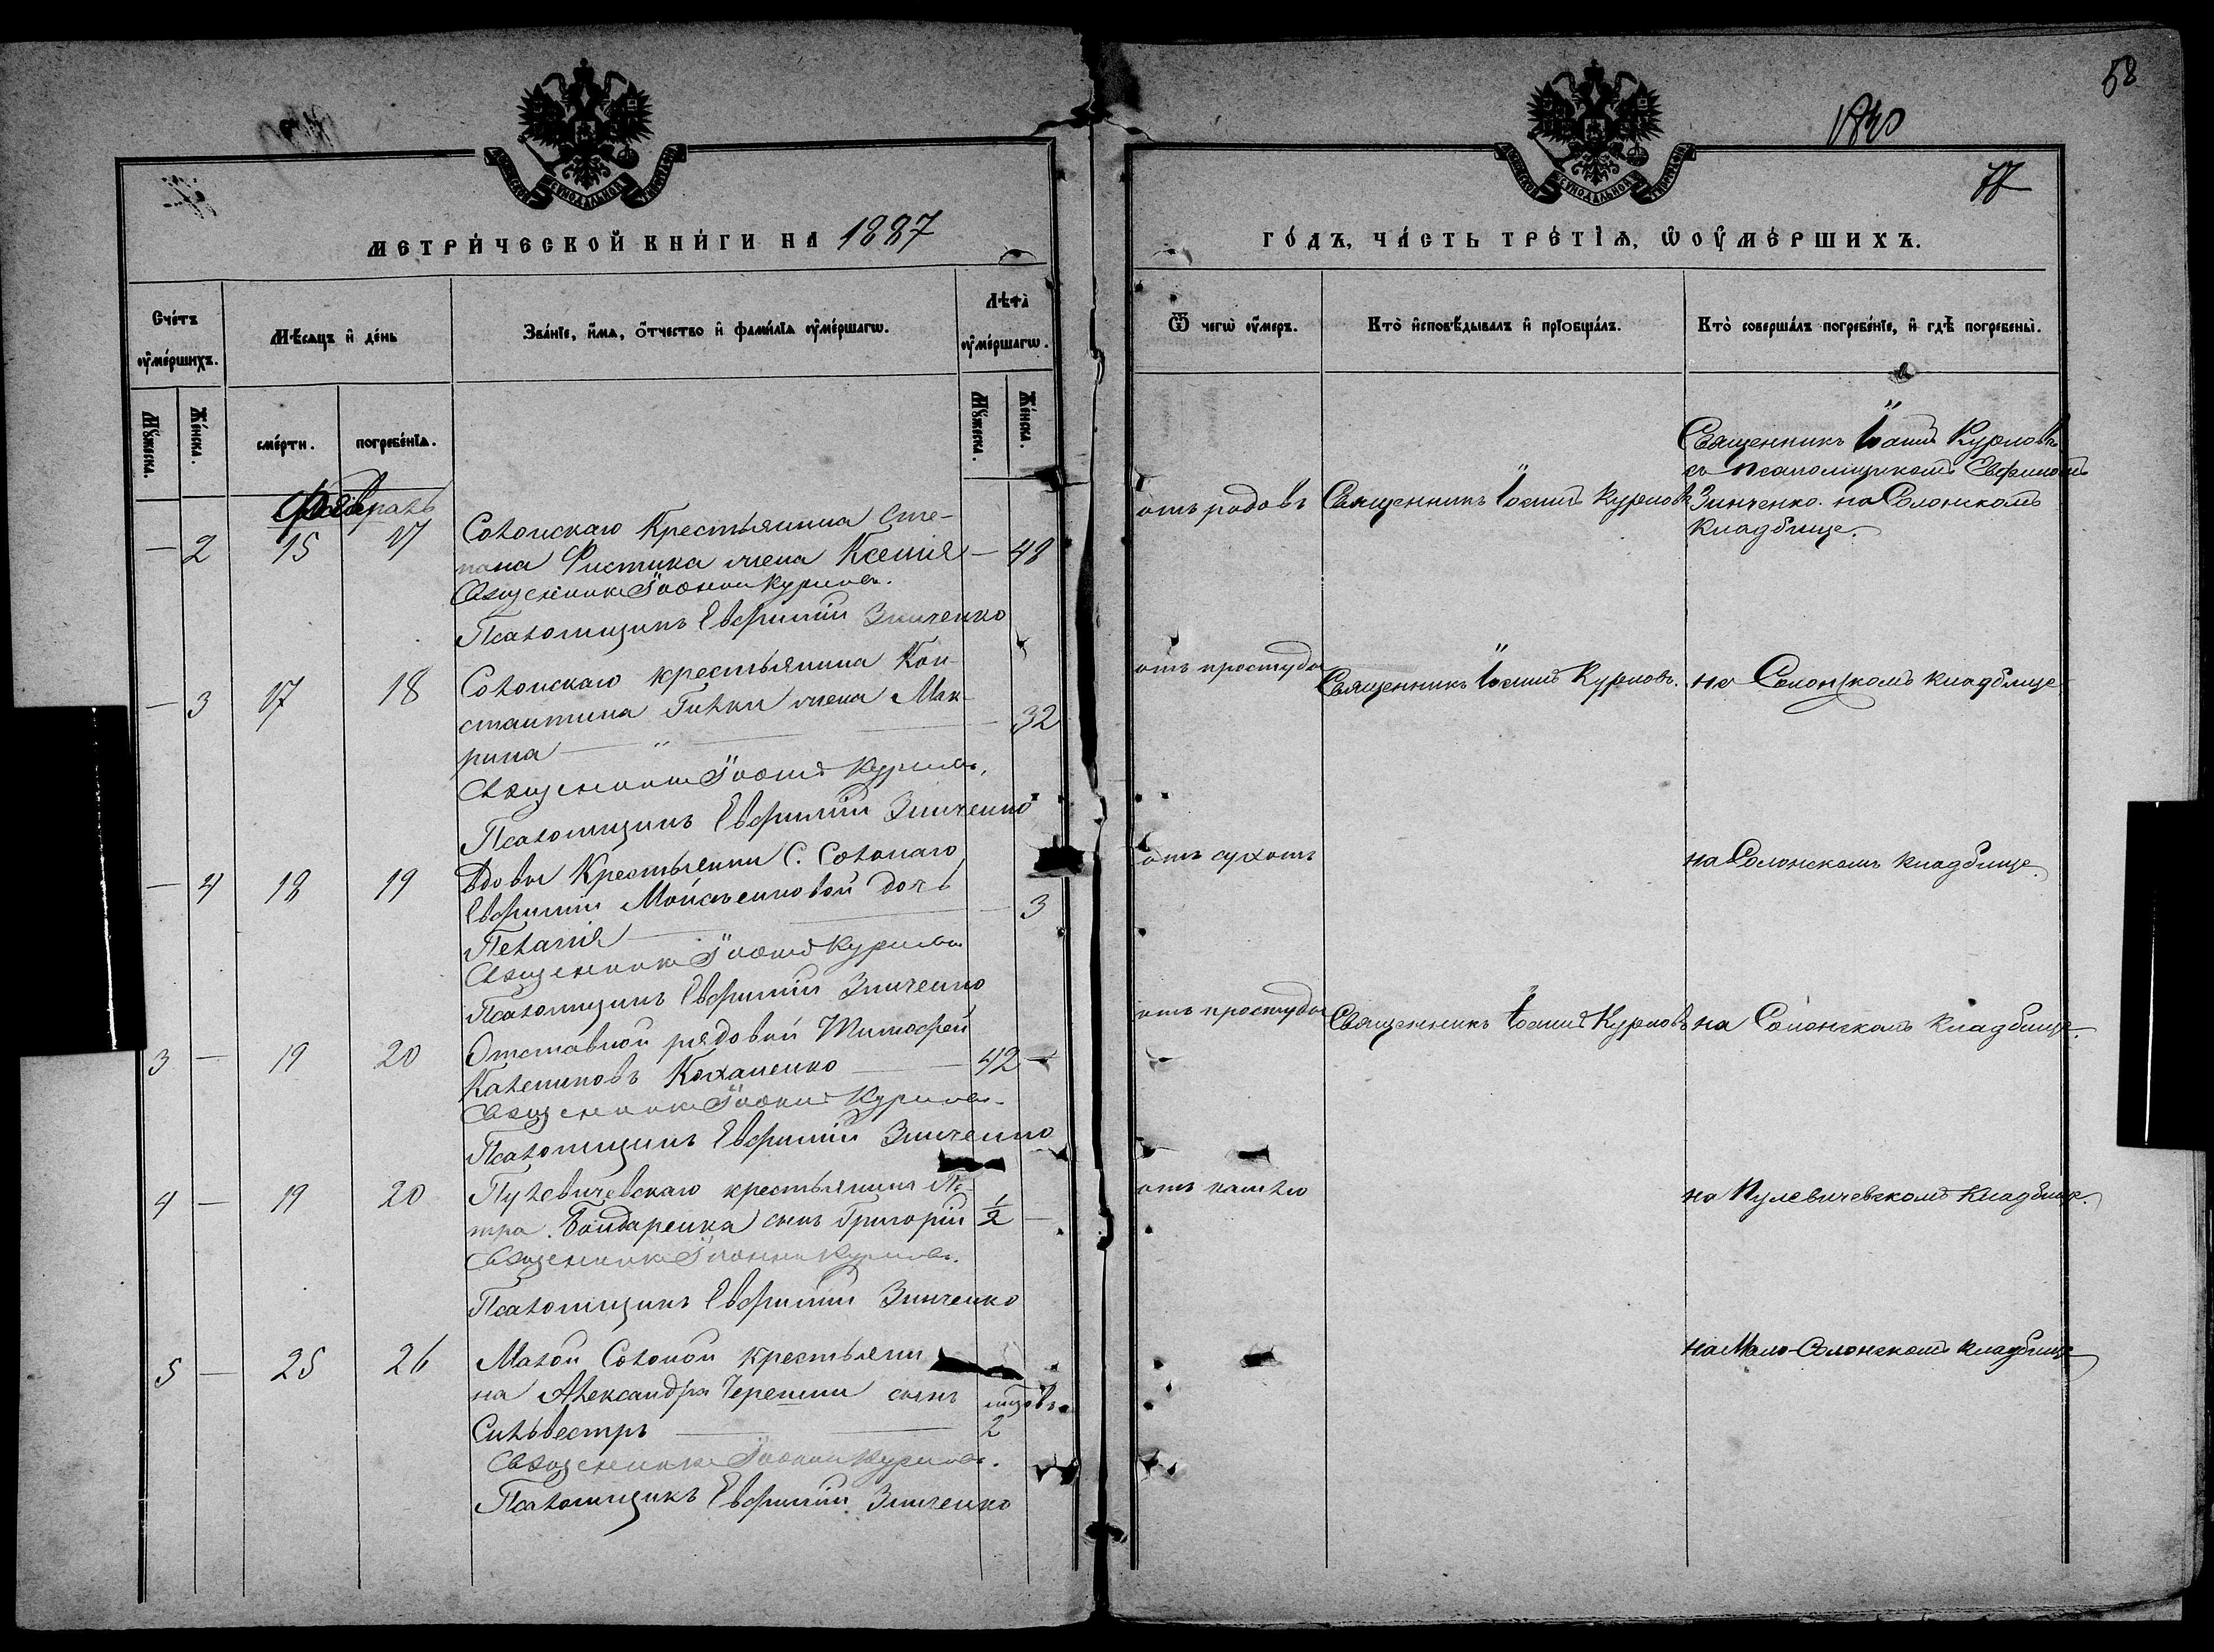 МЕТРИЧЕСКОЙ КНИГИ НА 1887
Счетъ умершихъ.
Мѣсяцъ и день
Званіе, имя, отчество и фамилія умершагѡ.
Лѣта умершагѡ.
Мужеска.
Женска.
смерти.
погребенія.
Мужеска.
Женска.
Февраль
— 2 15 17 Солонскаго Крестьянина Сте-
пана Фистика жена Ксенія — 48
Священникъ Іоаннъ Курловъ.
Псаломщикъ Евфимій Зинченко
— 3 17 18 Солонскаго крестьянина Кон-
стантина Гилки жена Мак-
рина — 32
Священникъ Іоаннъ Курловъ.
Псаломщикъ Евфимій Зинченко
— 4 18 19 Вдовы Крестьянки С. Солонаго
Евфиміи Мойсѣенковой дочь
Пелагія — 3
Священникъ Іоаннъ Курловъ
Псаломщикъ Евфимій Зинченко
3 — 19 20 Отставной рядовой Тимофей
Калениковъ Коханенко — 42 —
Священникъ Іоаннъ Курловъ
Псаломщикъ Евфимій Зинченко
4 — 19 20 Пулевичевскаго крестьянина Пе-
тра Бондаренка сынъ Григорій 1/2 —
Священникъ Іоаннъ Курловъ.
Псаломщикъ Евфимій Зинченко
5 — 25 26 Малой Солоной крестьяни
на Александра Черешни сынъ
Сильвестръ — 2
Священникъ Іоаннъ Курловъ.
Псаломщикъ Евфимій Зинченко
58
1840
ГОДЪ, ЧАСТЬ ТРЕТІЯ, Ѡ УМЕРШИХЪ.
Ѿ чегѡ умеръ.
Кто исповѣдывалъ и пріобщалъ.
Кто совершалъ погребеніе, и гдѣ погребены.
отъ родовъ Священникъ Іоаннъ Курловъ
Священникъ Іоаннъ Курловъ
съ псаломщикомъ Евфиміемъ
Зинченко на Солонскомъ
кладбище.
отъ простуды Священникъ Іоаннъ Курловъ. на Солонскомъ кладбище
отъ сухотъ на Солонскомъ кладбище.
отъ простуды Священникъ Іоаннъ Курловъ на Солонскомъ кладбище.
отъ кашлю на Пулевичевскомъ кладбище.
на Мало-Солонскомъ кладбище